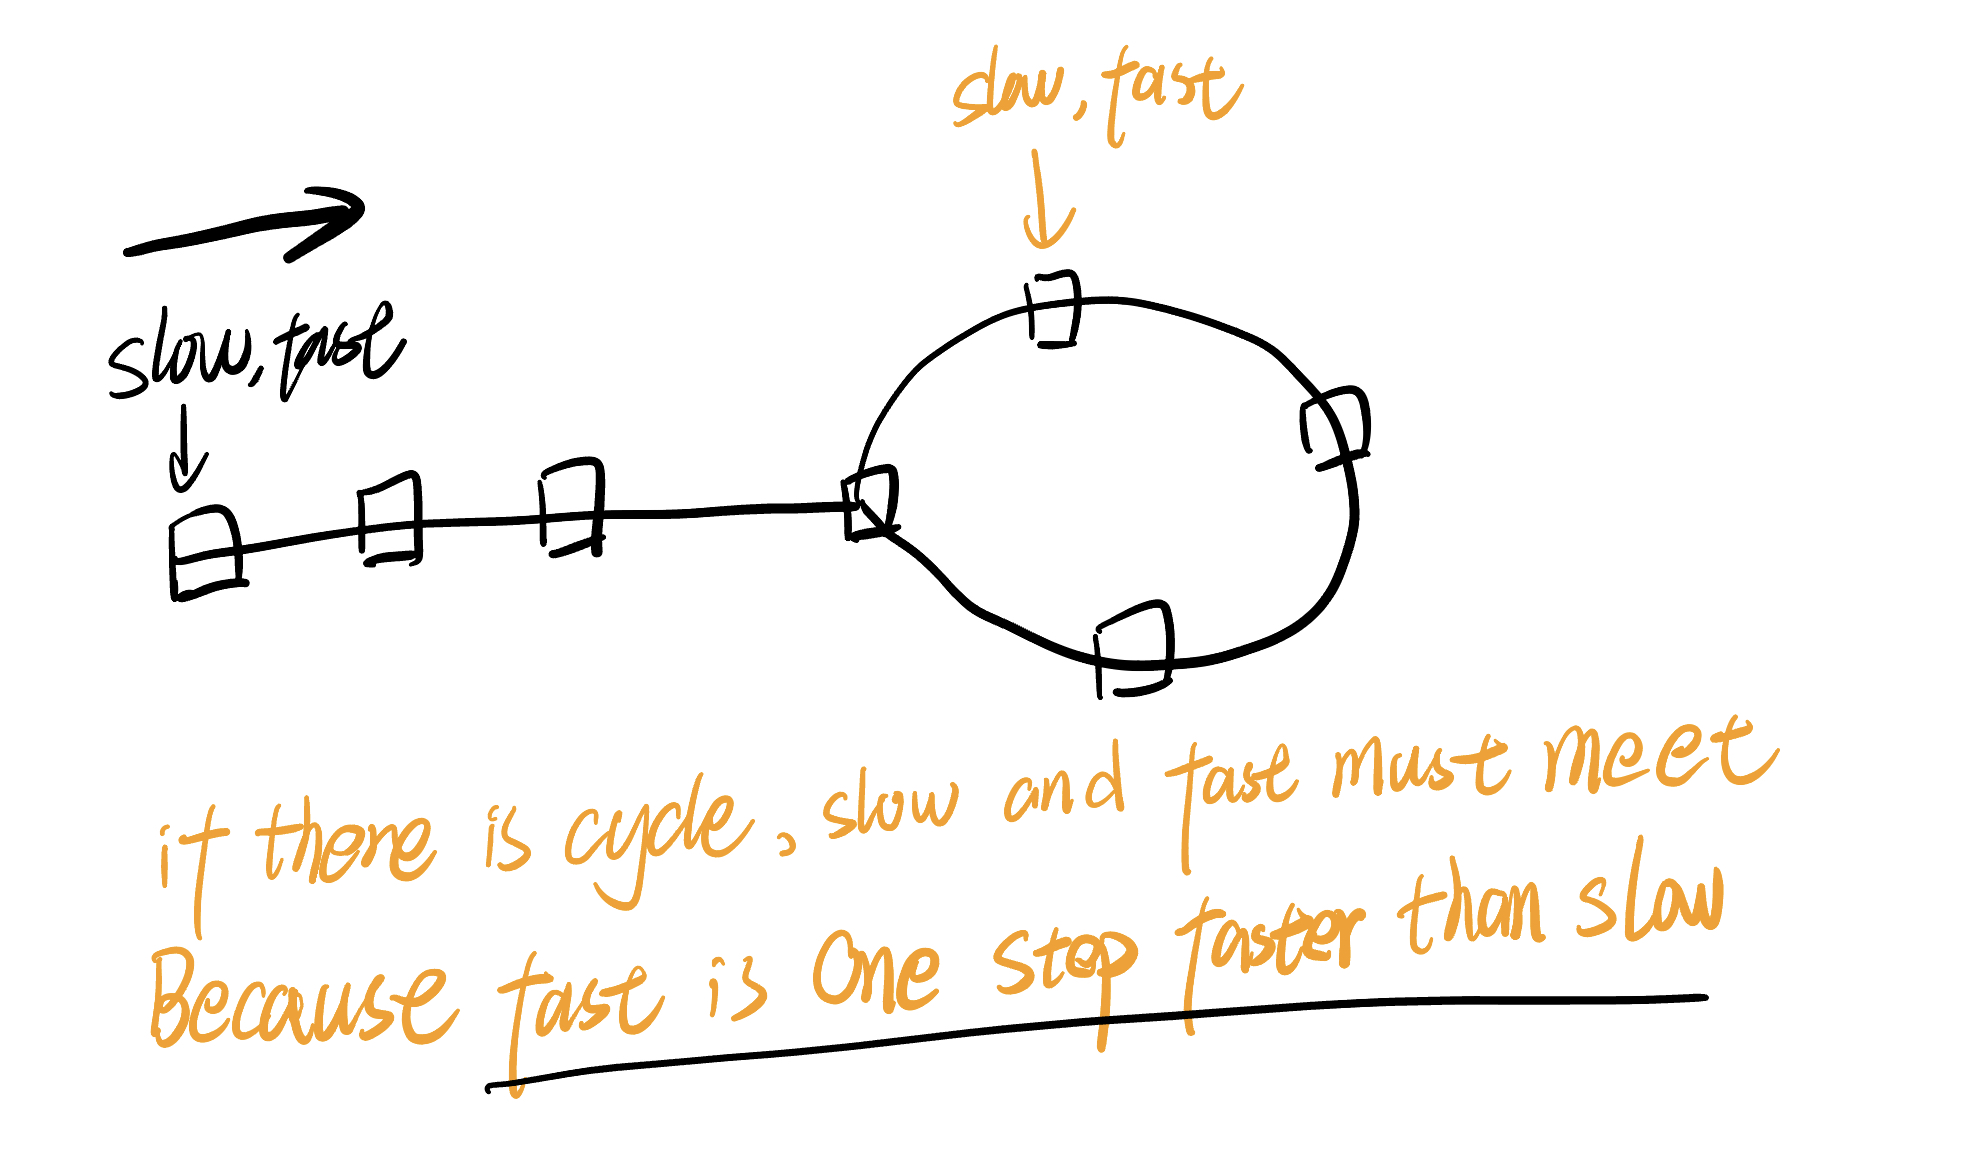 slow, fast
slow, fast
if there is cycle, slow and fast must meet
Because fast is One step faster than slow